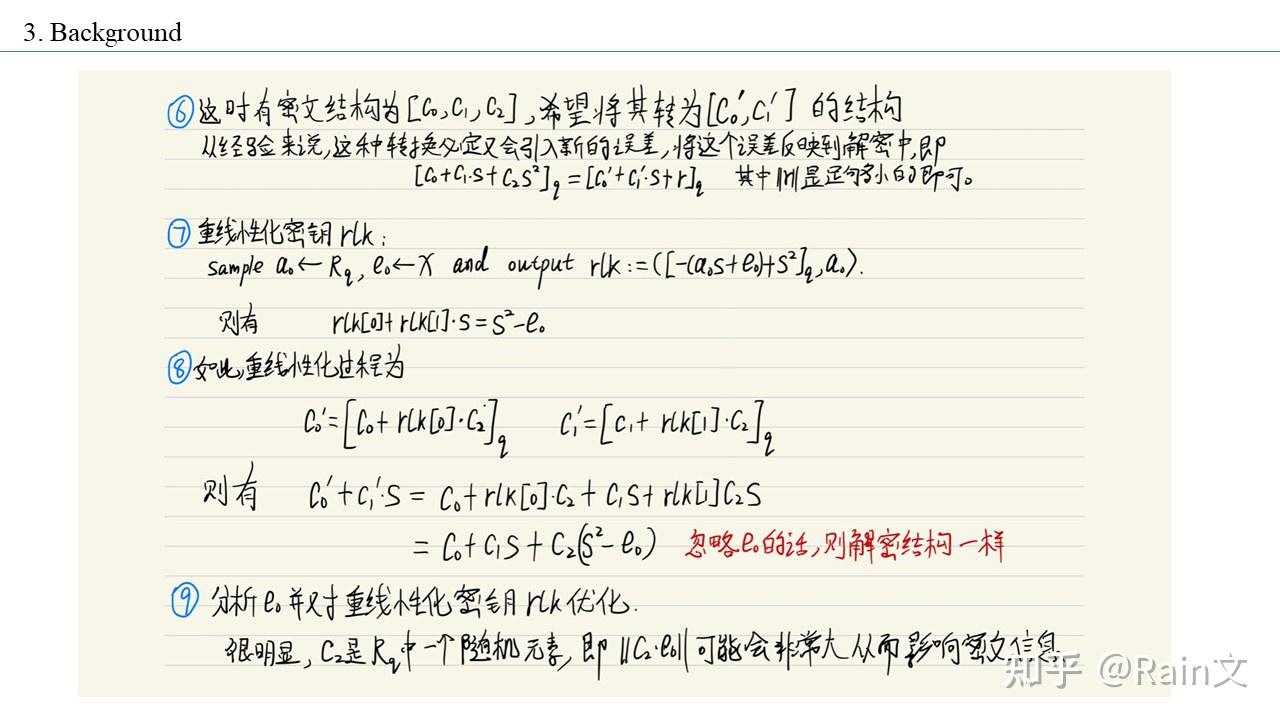 3. Background
⑥ 这时有密文结构为[C₀,C₁,C₂],希望将其转为[C₀′,C₁′]的结构
从经验来说,这种转换必定又会引入新的误差,将这个误差反映到解密中,即
[C₀+C₁·S+C₂S²]_q=[C₀′+C₁′·S+r]_q 其中‖r‖是足够小的即可。
⑦ 重线性化密钥rlk:
sample a₀←R_q, e₀←χ and output rlk:=([-(a₀s+e₀)+s²]_q,a₀).
则有 rlk[0]+rlk[1]·s=s²-e₀
⑧ 如此,重线性化过程为
C₀′=[C₀+rlk[0]·C₂]_q C₁′=[C₁+rlk[1]·C₂]_q
则有 C₀′+C₁′·S=C₀+rlk[0]·C₂+C₁S+rlk[1]C₂S
=C₀+C₁S+C₂(S²-e₀) 忽略e₀的话,则解密结构一样
⑨ 分析e₀并对重线性化密钥rlk优化.
很明显, C₂是R_q中一个随机元素,即‖C₂·e₀‖可能会非常大从而影响密文信息.
知乎 @Rain文